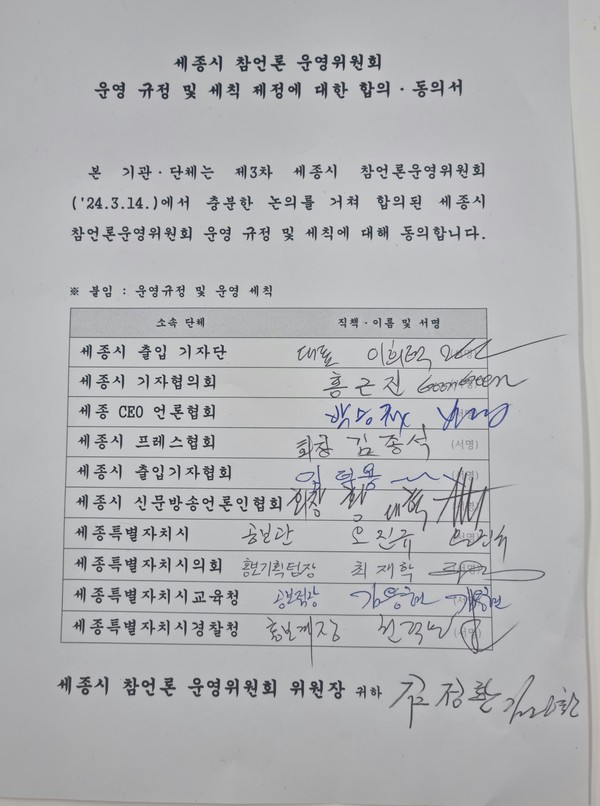 세종시 참언론 운영위원회
운영 규정 및 세칙 제정에 대한 합의·동의서
본 기관·단체는 제3차 세종시 참언론운영위원회
('24.3.14.)에서 충분한 논의를 거쳐 합의된 세종시
참언론운영위원회 운영 규정 및 세칙에 대해 동의합니다.
※ 붙임 : 운영규정 및 운영 세칙
소속 단체 직책·이름 및 서명
세종시 출입 기자단 대표 이희택
세종시 기자협의회 홍근진
세종 CEO 언론협회
세종시 프레스협회 회장 김종석 (서명)
세종시 출입기자협회
세종시 신문방송언론인협회 회장
세종특별자치시 공보관 오진규 오진규
세종특별자치시의회 홍보기획팀장 최재학
세종특별자치시교육청
세종특별자치시경찰청 홍보계장
세종시 참언론 운영위원회 위원장 귀하